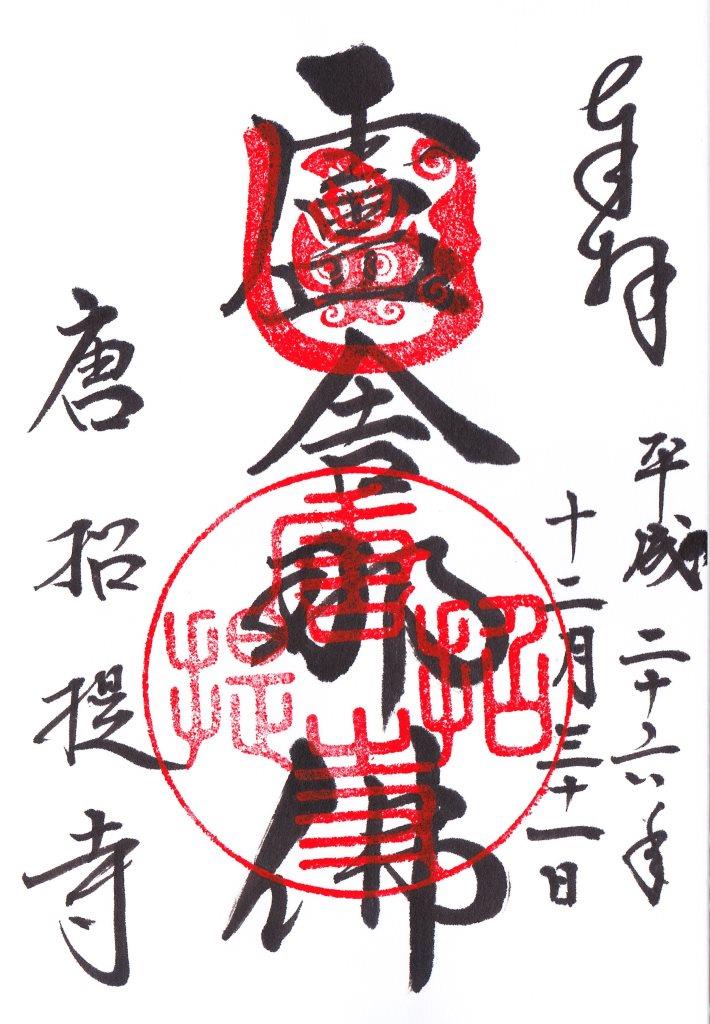 奉拝
平成二十六年
十二月三十一日
盧舎那佛
唐招提寺
唐招提寺